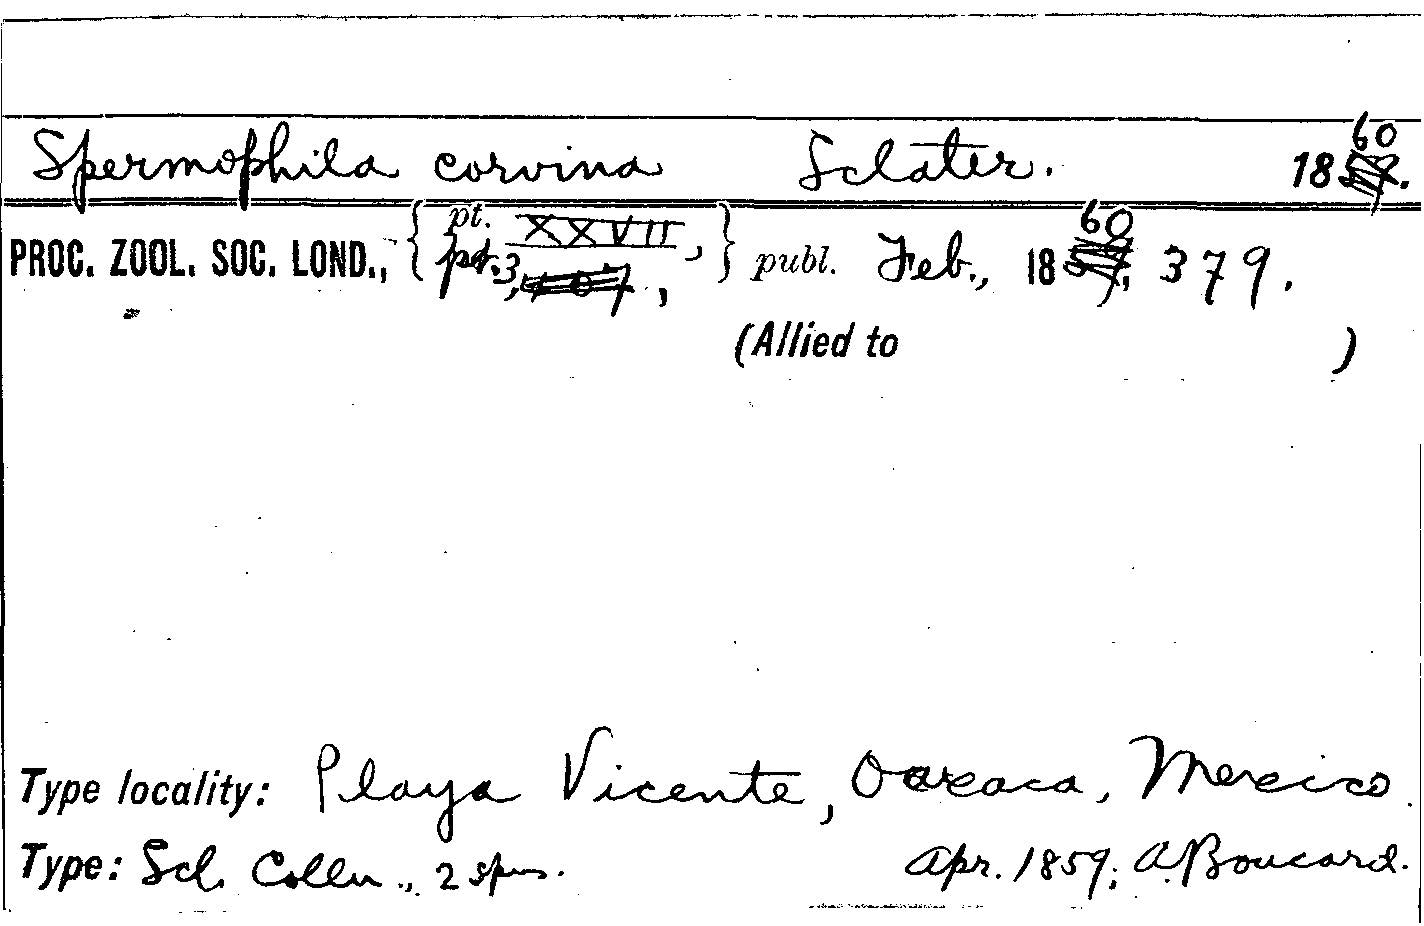 Spermophila corvina Sclater. 1860.
PROC. ZOOL. SOC. LOND., { pt. XXVII, pt. 3, , } publ. Feb., 1860, 379.
(Allied to )
Type locality: Playa Vicente, Oaxaca, Mexico.
Type: Scl. Colln., 2 spms. Apr. 1859; A. Boucard.